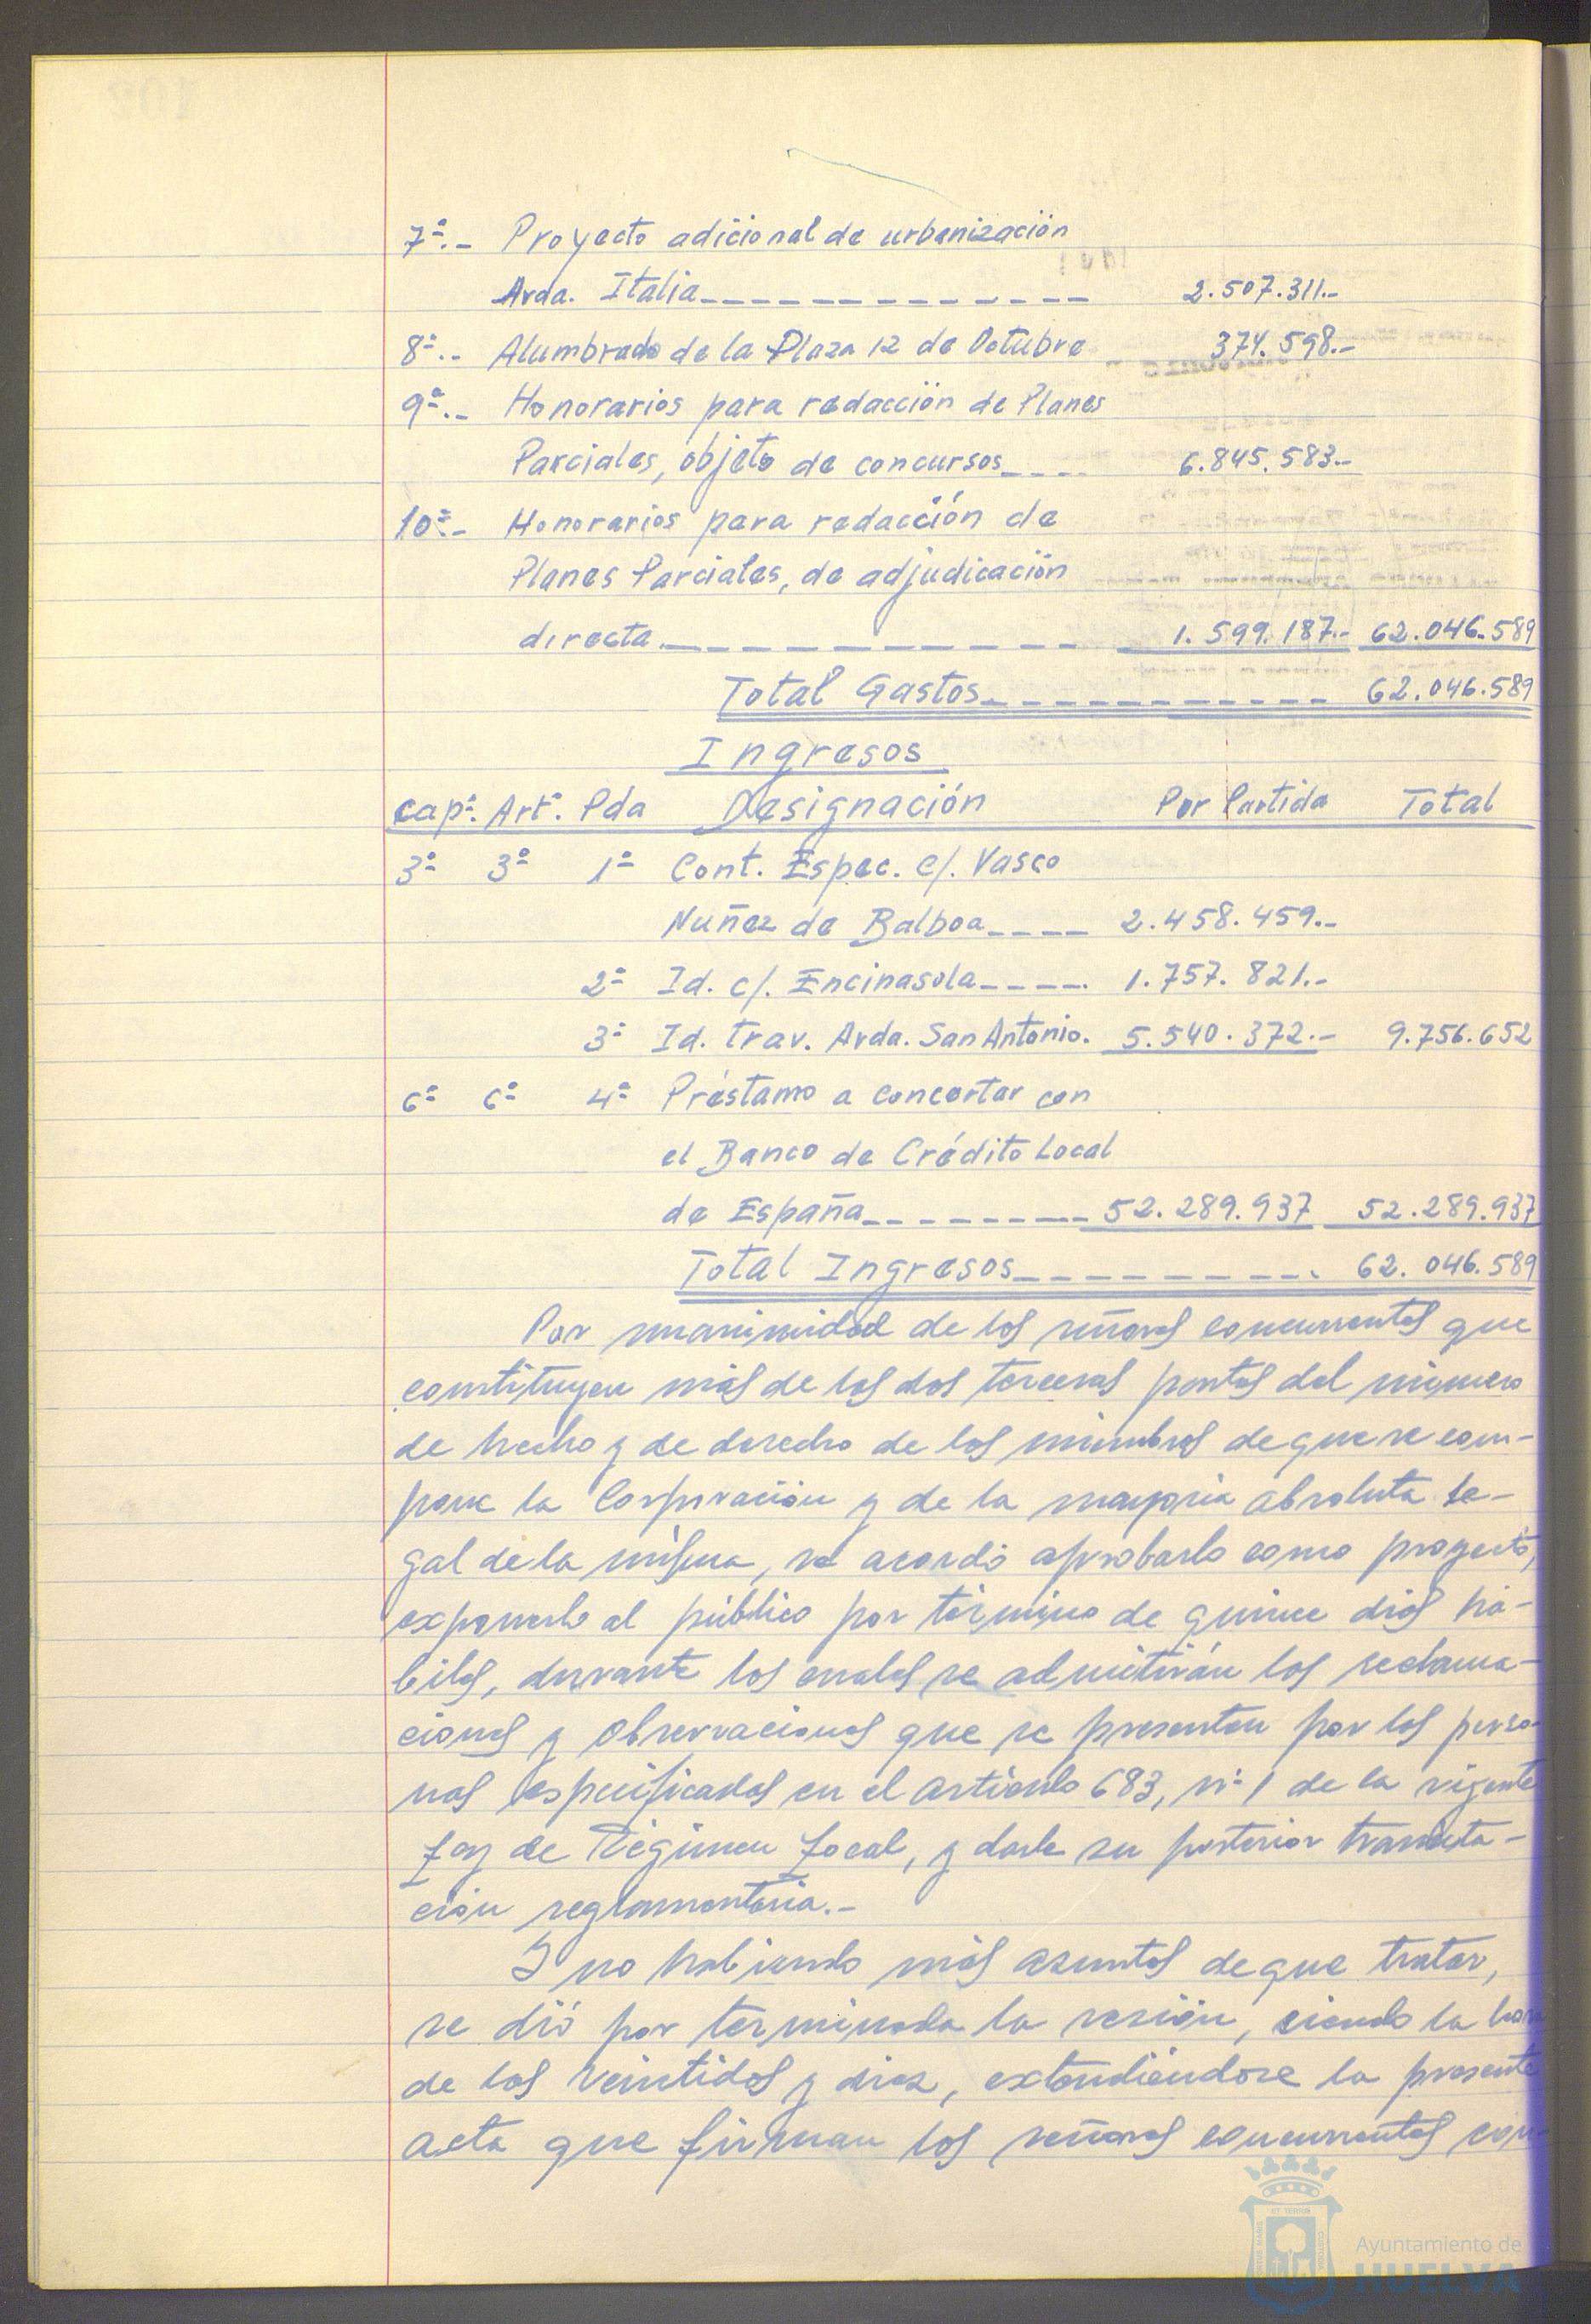 7ª.- Proyecto adicional de urbanización
Avda. Italia------------- 2.507.311.-
8ª.- Alumbrado de la Plaza 12 de Octubre 374.598.-
9ª.- Honorarios para redacción de Planes
Parciales, objeto de concursos---- 6.845.583.-
10ª.- Honorarios para redacción de
Planes Parciales, de adjudicación
directa.----------- 1.599.187.- 62.046.589
Total Gastos------------ 62.046.589
Ingresos
Capº. Artº. Pda Designación Por Partida Total
3º 3º 1ª Cont. Espec. c/. Vasco
Nuñez de Balboa---- 2.458.459.-
2ª Id. c/. Encinasola----. 1.757.821.-
3ª Id. trav. Avda. San Antonio. 5.540.372.- 9.756.652
6º 6º 4ª Préstamo a concertar con
el Banco de Crédito Local
de España--------- 52.289.937 52.289.937
Total Ingresos----------. 62.046.589
Por unanimidad de los señores concurrentes que
constituyen más de las dos terceras partes del número
de hecho y de derecho de los miembros de que se com-
pone la Corporación y de la mayoría absoluta le-
gal de la misma, se acordó aprobarlo como proyecto,
exponerlo al público por término de quince días há-
biles, durante los cuales se admitirán las reclama-
ciones y observaciones que se presenten por las perso-
nas especificadas en el artículo 683, nº 1 de la vigente
Ley de Régimen Local, y darle su posterior tramita-
ción reglamentaria.-
Y no habiendo más asuntos de que tratar,
se dió por terminada la sesión, siendo la hora
de las veintidos y diez, extendiéndose la presente
acta que firman los señores concurrentes con-
Ayuntamiento de
HUELVA